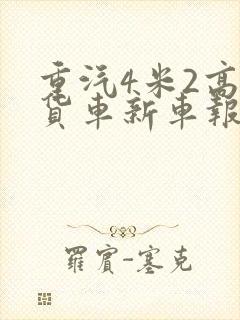 重汽4米2高
貨車新車報
羅賓-塞克